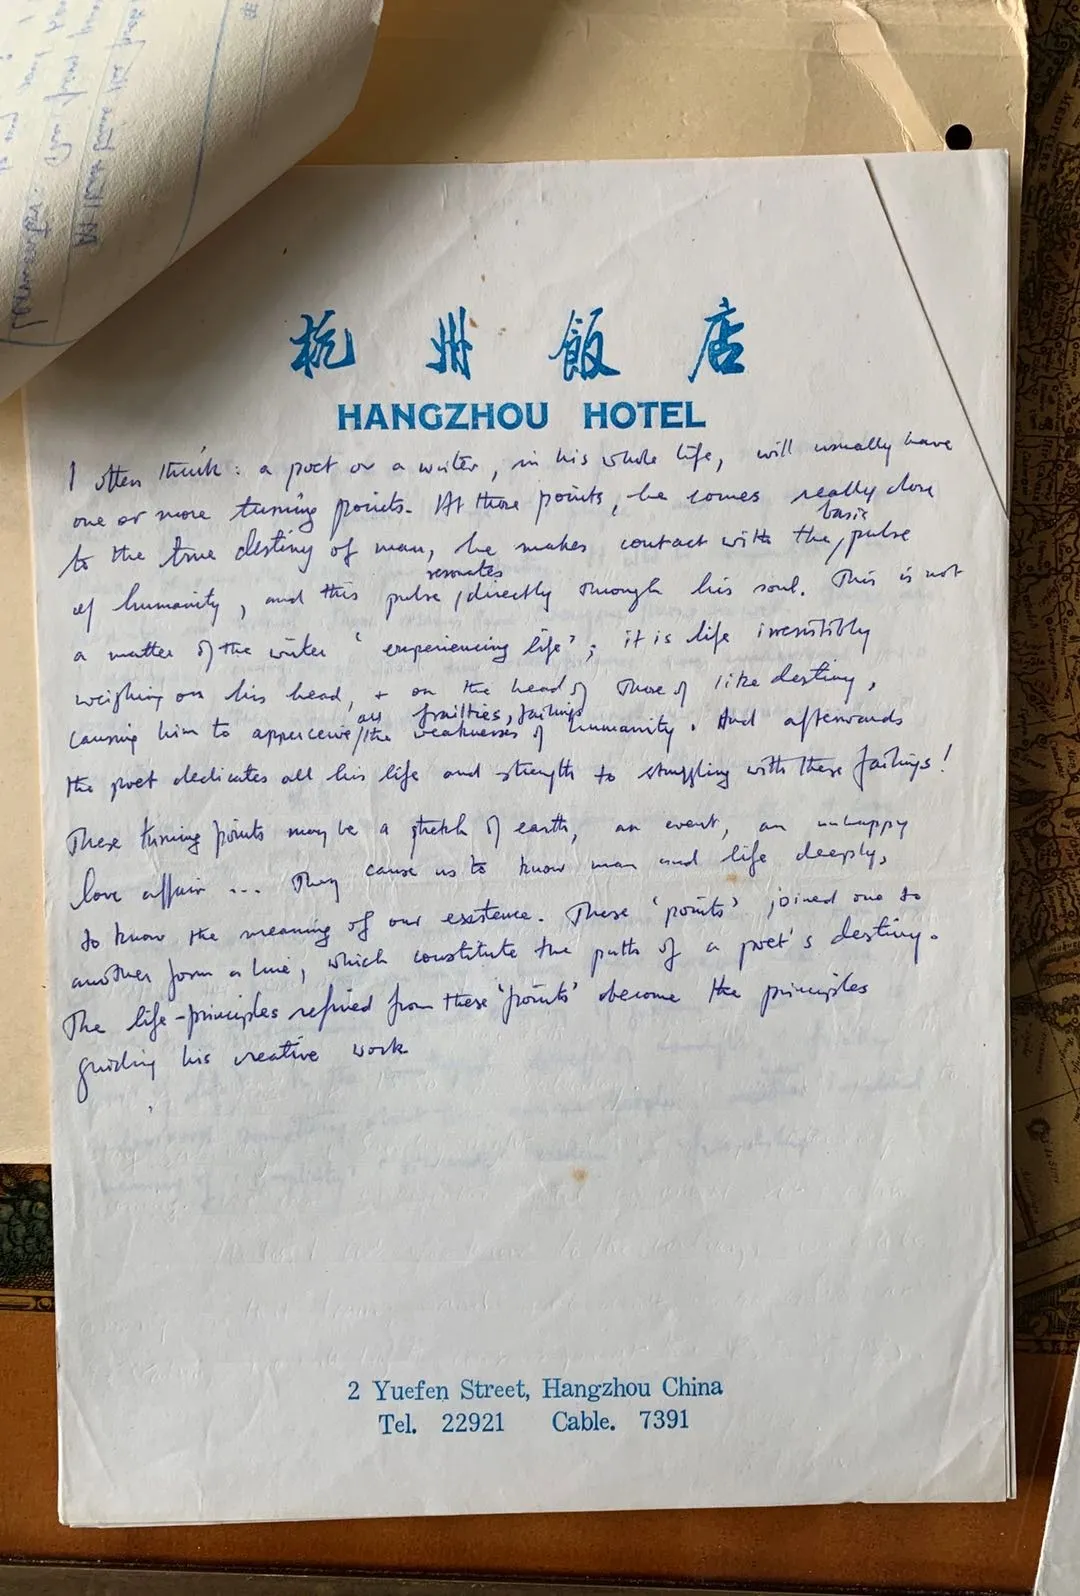 杭州飯店
HANGZHOU HOTEL
I often think: a poet or a writer, in his whole life, will usually have
one or more turning points. At those points, he comes really close
basic
to the true destiny of man, he makes contact with the / pulse
resonates
of humanity, and this pulse / directly through his soul. This is not
a matter of the writer 'experiencing life'; it is life irresistibly
weighing on his head, + on the head of those of like destiny,
all frailties, failings
causing him to apperceive / the weaknesses of humanity. And afterwards
the poet dedicates all his life and strength to struggling with these failings!
These turning points may be a stretch of earth, an event, an unhappy
love affair ... They cause us to know man and life deeply,
to know the meaning of our existence. These 'points' joined one to
another form a line, which constitute the path of a poet's destiny.
The life-principles refined from these 'points' become the principles
guiding his creative work.
2 Yuefen Street, Hangzhou China
Tel. 22921 Cable. 7391